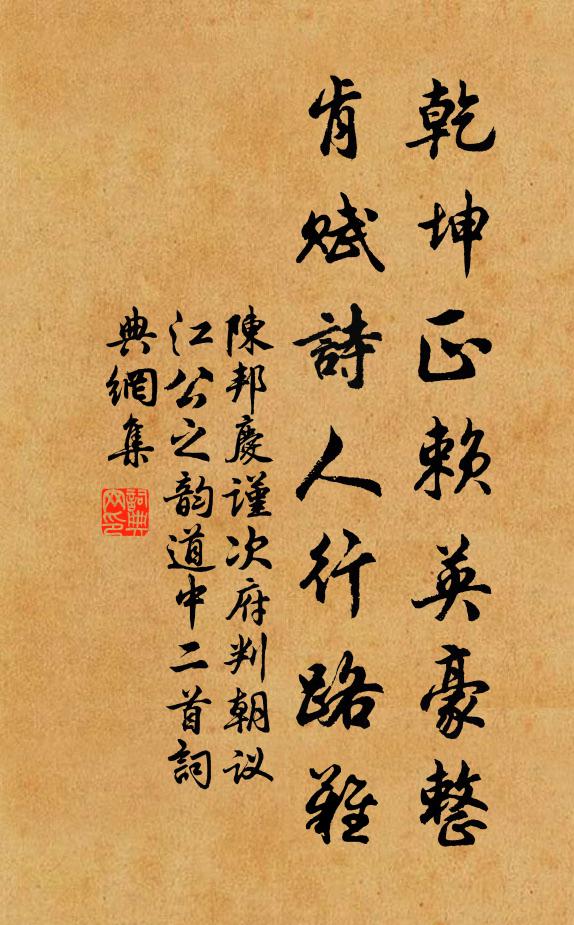 乾坤正賴英豪整
肯賦詩人行路難
陳邦慶謹次府判朝议
江公之韵道中二首詞
典網集
詞典網印